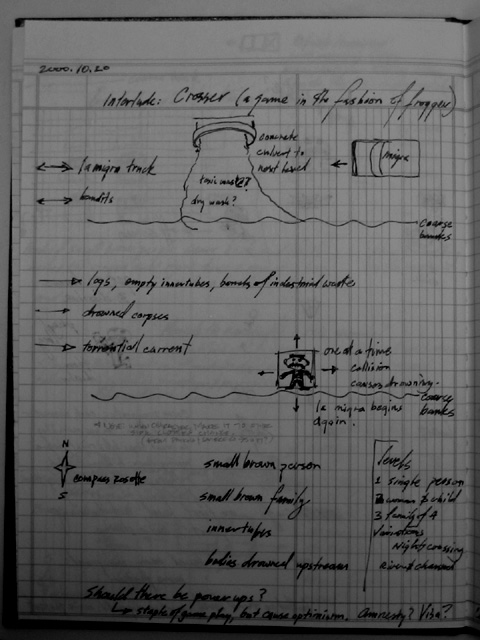 2000.10.20
Interlude: Crosser (a game in the fashion of frogger)
concrete
culvert to
next level
la migra truck
migra
toxic waste?
bandits
dry wash?
coarse
banks
logs, empty innertubes, barrels of industrial waste
drowned corpses
torrential current
one at a time.
collision
causes drowning.
coarse
banks
la migra begins
again.
N
S
compass rosette
small brown person
small brown family
innertubes
bodies drowned upstream
levels
1 single person
2 woman & child
3 family of 4
variations
Night crossing
River channel
Should there be powerups?
staple of game play, but cause optimism. amnesty? Visa?